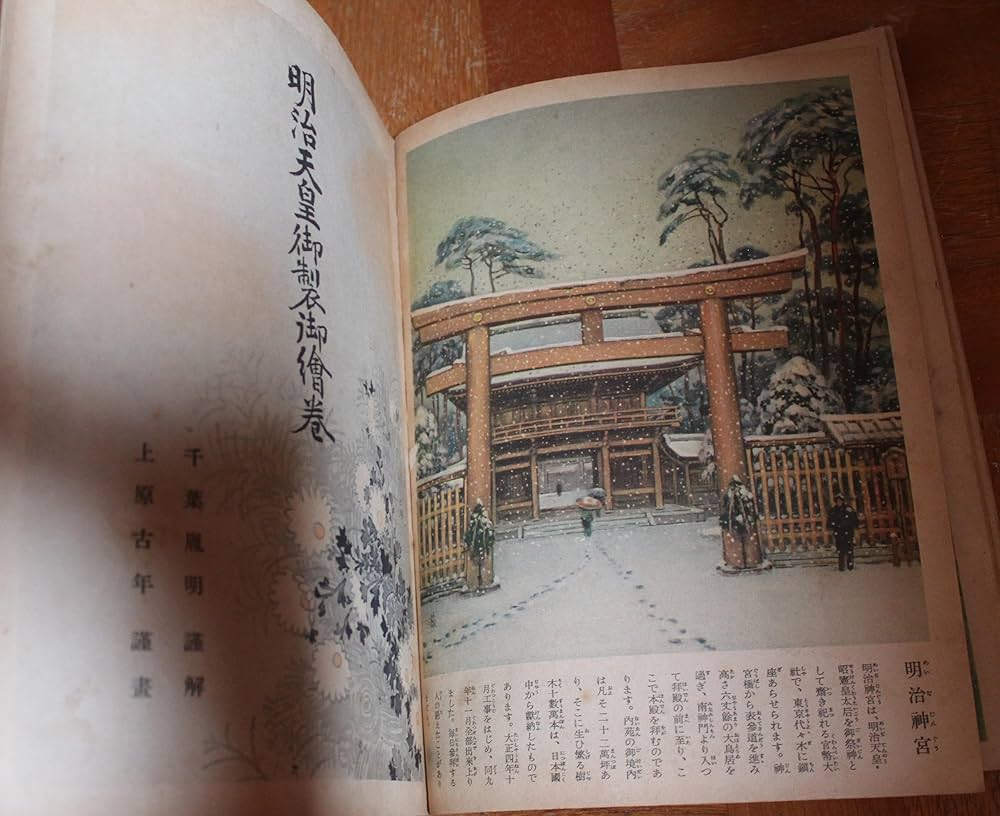 明治神宮
明治神宮は、明治天皇・
昭憲皇太后を御祭神と
して齋き祀れる官幣大
社で、東京代々木に鎭
座あらせられます。神
宮橋から表參道を進み
高さ六丈餘の大鳥居を
過ぎ、南神門より入つ
て拜殿の前に至り、こ
こで本殿を拜むのであ
ります。内苑の御境内
は凡そ二十一萬坪あ
り、そこに生ひ繁る樹
木十數萬本は、日本國
中から獻納したもので
あります。大正四年十
月工事をはじめ、同九
年十一月全部出來上り
ました。毎日參拜する
人の絶えたことがあり
明治天皇御製御繪卷
千葉胤明謹解
上原古年謹畫